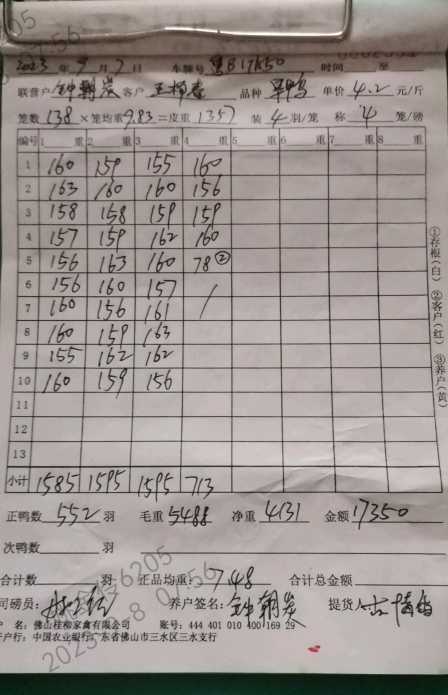 2023年9月7日 车牌号 粤B17K50 时间 至
联营户 钟朝炭 客户 品种 单价 4.2 元/斤
笼数 138 ×笼均重 9.83 =皮重 1357 装 4 羽/笼 称 4 笼/磅
编号 1 重 2 重 3 重 4 重 5 重 6 重 7 重 8 重
1 160 159 155 160
2 163 160 160 156
3 158 158 159 159
4 157 159 162 160
5 156 163 160 78②
6 156 160 157 /
7 160 156 161
8 160 159 163
9 155 162 162
10 160 159 156
11
12
13
小计 1585 1595 1595 713
正鸭数 552 羽 毛重 5488 净重 4131 金额 17350
次鸭数 羽
合计数 羽 正品均重: 7.48 合计总金额
司磅员: 养户签名: 钟朝炭 提货人
名: 佛山桂柳家禽有限公司 账号: 444 401 010 400 169 29
开户行: 中国农业银行广东省佛山市三水区三水支行
①存根(白) ②客户(红) ③养户(黄)